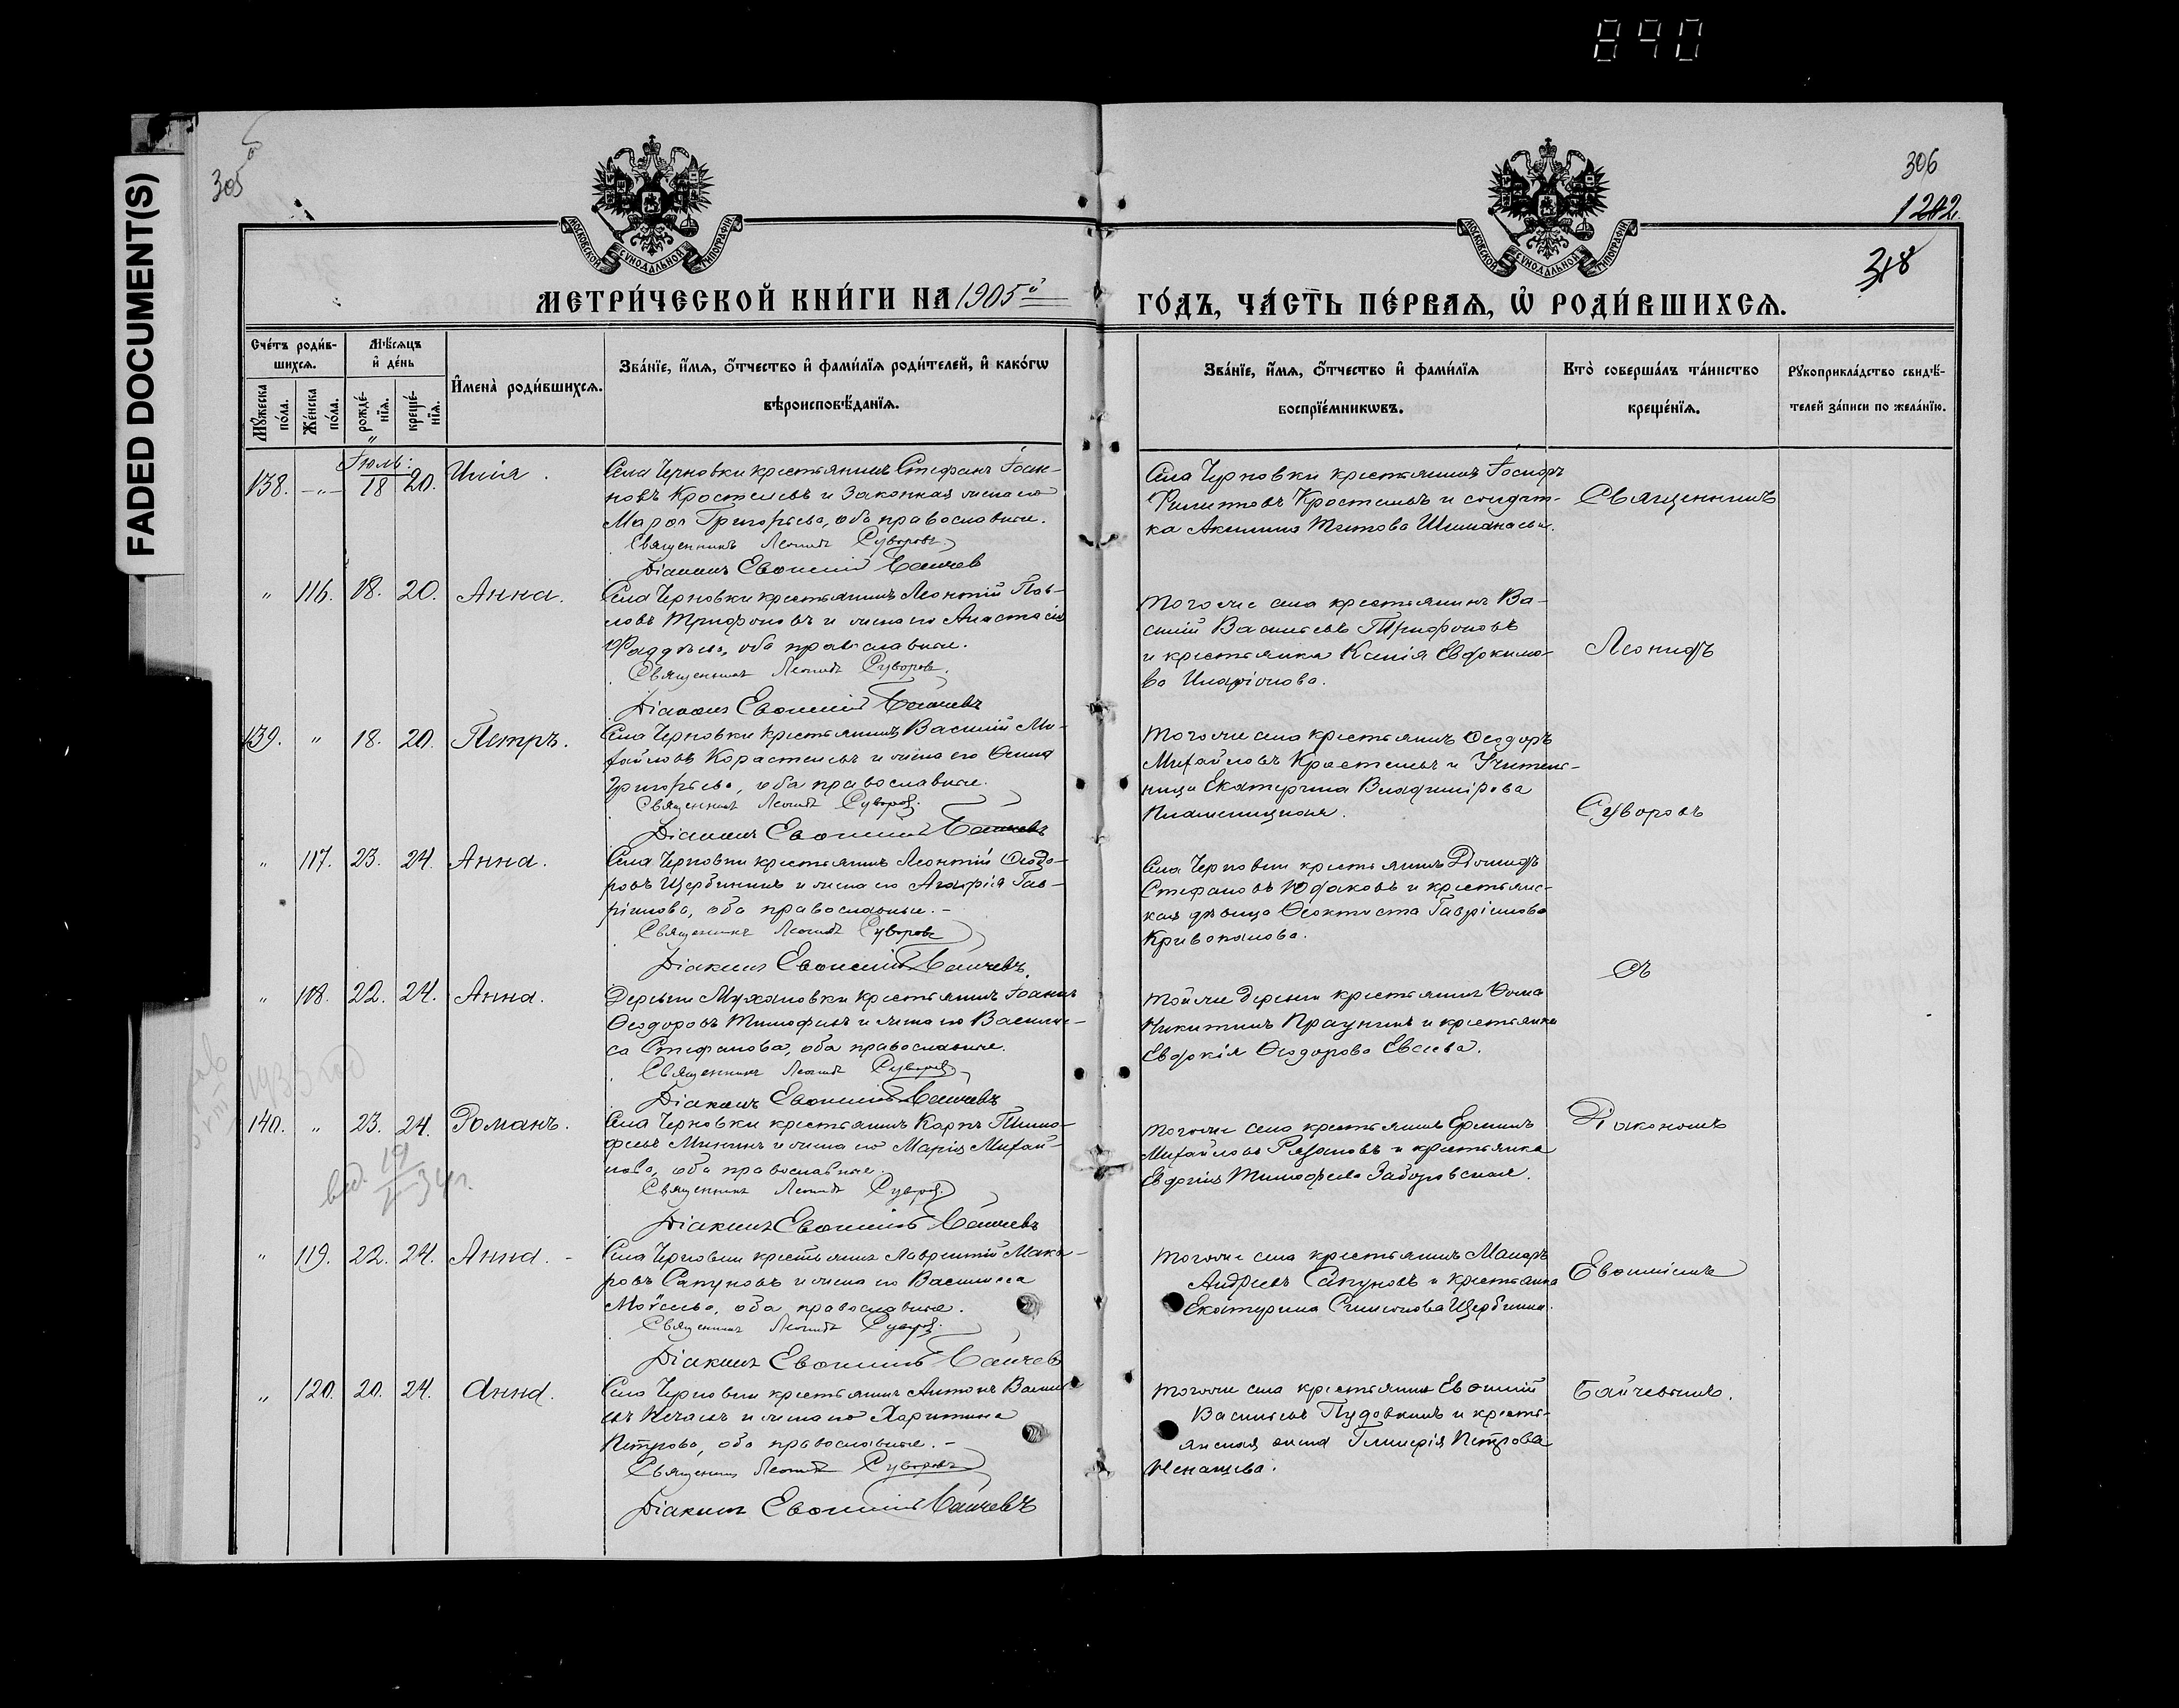 890
FADED DOCUMENT(S)
305
306
1242.
318
МОСКОВСКОЙ СѴНОДАЛЬНОЙ ТИПОГРАФІИ
МОСКОВСКОЙ СѴНОДАЛЬНОЙ ТИПОГРАФІИ
МЕТРИ́ЧЕСКОЙ КНИ́ГИ НА 1905й
ГО́ДЪ, ЧА́СТЬ ПЕ́РВАѦ, Ѡ҆ РОДИ́ВШИХСѦ.
Сче́тъ роди́в-
шихсѧ.
Мꙋ́жеска по́ла.
Же́нска по́ла.
Мѣ́сѧцъ
и҆ де́нь
рожде́-нїѧ.
креще́-нїѧ.
И҆мена̀ роди́вшихсѧ.
Зва́нїе, и҆́мѧ, ѻ҆́тчество и҆ фами́лїѧ роди́телей, и҆ како́гѡ
вѣроисповѣ́данїѧ.
Зва́нїе, и҆́мѧ, ѻ҆́тчество и҆ фами́лїѧ
воспрїе́мникѡвъ.
Кто̀ соверша́лъ та́инство
креще́нїѧ.
Рꙋкоприкла́дство свидѣ́-
телей за́писи по жела́нїю.
Іюль:
138. -„- 18 20. Илія.
Села Черновки крестьянинъ Стефанъ Іоан-
новъ Кростелевъ и законная жена его
Марѳа Григорьева, оба православные.
Священникъ Леонидъ Суворовъ
Діаконъ Евѳимій Байчевъ
Села Черновки крестьянинъ Іосифъ
Филиповъ Кростелевъ и солдат-
ка Акилина Титова
Священникъ
„ 116. 18. 20. Анна.
Села Черновки крестьянинъ Леонтій Пав-
ловъ Трифоновъ и жена его Анастасія
Фаддѣева, оба православные.
Священникъ Леонидъ Суворовъ
Діаконъ Евѳимій Байчевъ
Того же села крестьянинъ Ва-
силій Васильевъ Трифоновъ
и крестьянка Ксенія Евдокимо-
ва Иларіонова.
Леонидъ
139. „ 18. 20. Петръ.
Села Черновки крестьянинъ Василій Ми-
хайловъ Корастелевъ и жена его
Григорьева, оба православные.
Священникъ Леонидъ Суворовъ
Діаконъ Евѳимій Байчевъ
Того же села крестьянинъ Ѳеодоръ
Михайловъ Кростелевъ и Учитель-
ница Екатерина Владимірова
Суворовъ
„ 117. 23. 24. Анна.
Села Черновки крестьянинъ Леонтій Ѳеодо-
ровъ Щербининъ и жена его Агафія Гав-
ріилова, оба православные. -
Священникъ Леонидъ Суворовъ
Діаконъ Евѳимій Байчевъ.
Села Черновки крестьянинъ
Стефановъ Юдаковъ и крестьянс-
кая дѣвица Ѳеоктиста Гавріилова
Кривопалова.
съ
„ 118. 22. 24. Анна.
Деревни Мухановки крестьянинъ Іоаннъ
Ѳеодоровъ Тимофеевъ и жена его Васили-
са Стефанова, оба православные.
Священникъ Леонидъ Суворовъ
Діаконъ Евѳимій Байчевъ
Той же деревни крестьянинъ Ѳома
Никитинъ и крестьянка
Евдокія Ѳеодорова Евсеева.
140. „ 23. 24. Романъ.
Села Черновки крестьянинъ Карпъ Тимо-
феевъ Мининъ и жена его Марія Михай-
лова, оба православные.
Священникъ Леонидъ Суворовъ
Діаконъ Евѳимій Байчевъ
Того же села крестьянинъ
Михайловъ Рязановъ и крестьянка
Евдокія Тимофеева Заборовская.
Діакономъ
19 34 г.
„ 119. 22. 24. Анна. -
Села Черновки крестьянинъ Лаврентій Мака-
ровъ Сапуновъ и жена его Василисса
Моѵсеева, оба православные.
Священникъ Леонидъ Суворовъ
Діаконъ Евѳимій Байчевъ
Того же села крестьянинъ Макаръ
Андреевъ Сапуновъ и крестьянка
Екатерина Симонова Щербинина.
Евѳиміемъ
„ 120. 20. 24. Анна.
Села Черновки крестьянинъ Антонъ Василь-
евъ и жена его Харитина
Петрова, оба православные. -
Священникъ Леонидъ Суворовъ
Діаконъ Евѳимій Байчевъ
Того же села крестьянинъ Евѳимій
Васильевъ Пудовкинъ и кресть-
янская жена Гликерія Петрова
Ненашева.
Байчевымъ.